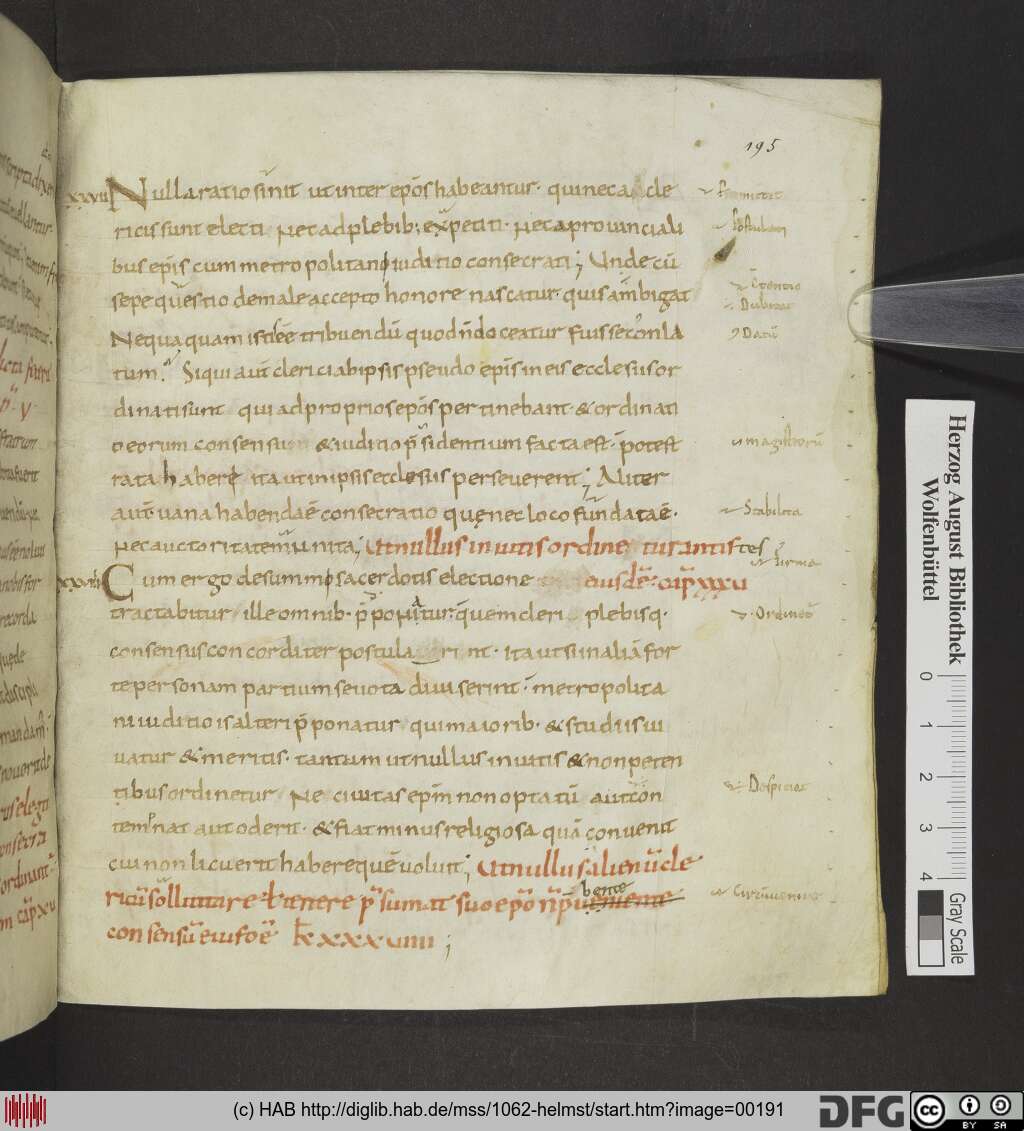 195
XXVII Nulla ratio sinit ut inter ep̄os habeantur. qui nec a cle
ricis sunt electi Nec ad plebib; expetiti. Nec a provinciali
bus ep̄is cum metropolitano iuditio consecrati; Unde cū
sepe questio de male accepto honore nascatur. quis ambigat
Nequaquam istis eē tribuendū quod n̄ doceatur fuisse conla
tum. Si qui aut̄ clerici ab ipsis pseudo ep̄is in eis ecclesiis or
dinati sunt qui ad proprios ep̄os pertinebant. & ordinati
o eorum consensu & iuditio p̄sidentium facta est. potest
rata habere ita ut in ipsis ecclesiis perseverent; Aliter
aut̄ vana habenda ē consecratio que nec loco fundata ē.
Nec auctoritate munita; Ut nullus invitis ordine tur antistes
XXVIII Cum ergo de summo sacerdotis electione eiusdē. cap̄ xxxv
tractabitur ille omnib. p̄ponatur. quem cleri plebisq.
consensus concorditer postula rint. ita ut si in aliā for
te personam partium se vota diviserint. metropolita
ni iuditio is alteri p̄ponatur qui maiorib. & studiis iu
vatur & meritis. tantum ut nullus invitis & non peten
tibus ordinetur Ne civitas ep̄m non optatū aut con
temnat aut oderit. & fiat minus religiosa quā convenit
cui non licuerit habere quē voluit; Ut nullus alienū cle
ricū sollicitare ł tenere p̄sumat suo ep̄o n̄ p̄
bente
consensū eius foē k xxxviiii;
Postulam
Dubitat
Datū
magistrorū
Stabilita
firma
Ordineē
Despiciat
Herzog August Bibliothek
Wolfenbüttel
0 1 2 3 4
Gray Scale
(c) HAB http://diglib.hab.de/mss/1062-helmst/start.htm?image=00191
DFG
cc BY SA